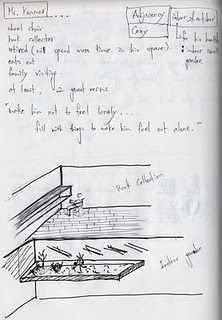 Mr. Kenmer.....
wheel chair
book collector
retired (will spend more time in his space).
eats out
family visiting.
at least, 2 guest rooms
"make him not to feel lonely.....
fill with things to make him feel not alone."
Adjacency
Cosy
indoor & outdoor
life his health
: indoor small garden
Book Collection
Indoor garden